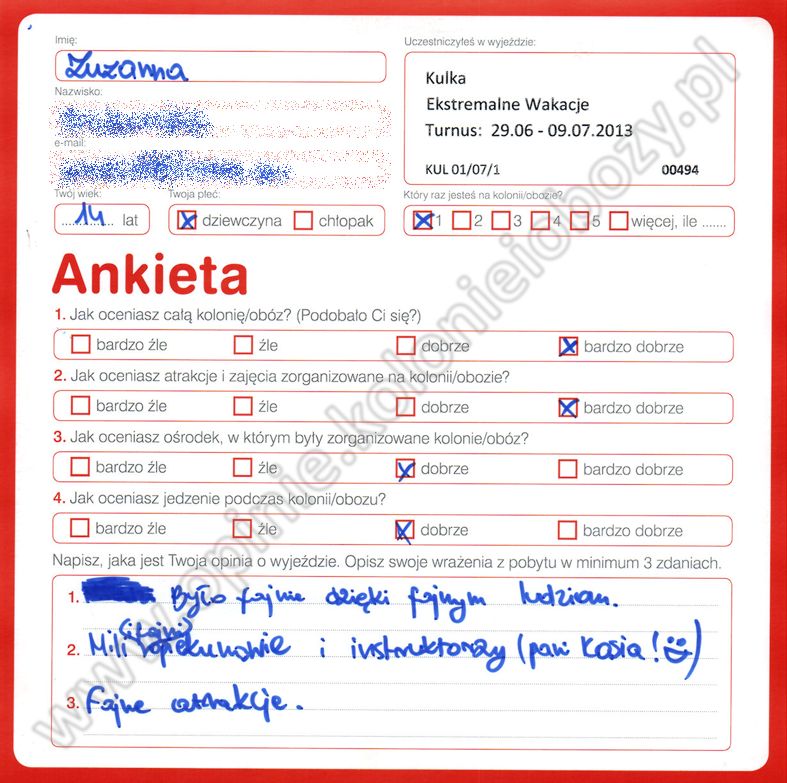 Imię:
Zuzanna
Nazwisko:
e-mail:
Twój wiek:
14 lat
Twoja płeć:
dziewczyna chłopak
Uczestniczyłeś w wyjeździe:
Kulka
Ekstremalne Wakacje
Turnus: 29.06 - 09.07.2013
KUL 01/07/1 00494
Który raz jesteś na kolonii/obozie?
1 2 3 4 5 więcej, ile .......
Ankieta
1. Jak oceniasz całą kolonię/obóz? (Podobało Ci się?)
bardzo źle źle dobrze bardzo dobrze
2. Jak oceniasz atrakcje i zajęcia zorganizowane na kolonii/obozie?
bardzo źle źle dobrze bardzo dobrze
3. Jak oceniasz ośrodek, w którym były zorganizowane kolonie/obóz?
bardzo źle źle dobrze bardzo dobrze
4. Jak oceniasz jedzenie podczas kolonii/obozu?
bardzo źle źle dobrze bardzo dobrze
Napisz, jaka jest Twoja opinia o wyjeździe. Opisz swoje wrażenia z pobytu w minimum 3 zdaniach.
1. Było fajnie dzięki fajnym ludziom.
2. Mili (i fajni) opiekunowie i instruktorzy (pani Kasia! )
3. Fajne atrakcje.
www.opinie.kolonieiobozy.pl